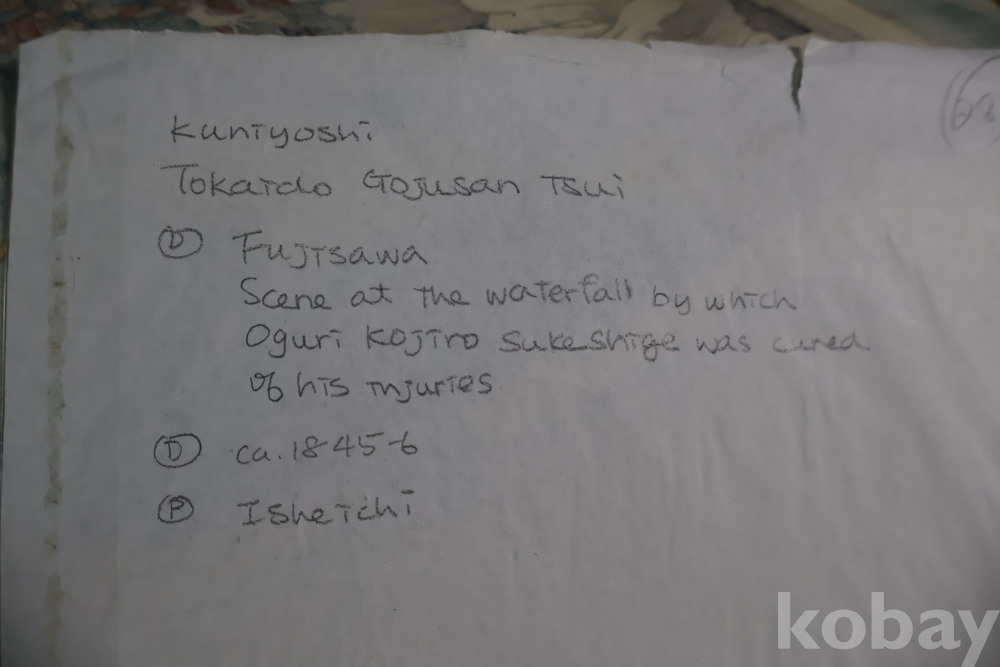 Kuniyoshi
Tokaido Gojusan Tsui
Ⓓ Fujisawa
Scene at the waterfall by which
Oguri Kojiro Sukeshige was cured
of his injuries
Ⓓ ca. 1845-6
Ⓟ Isheichi
kobay